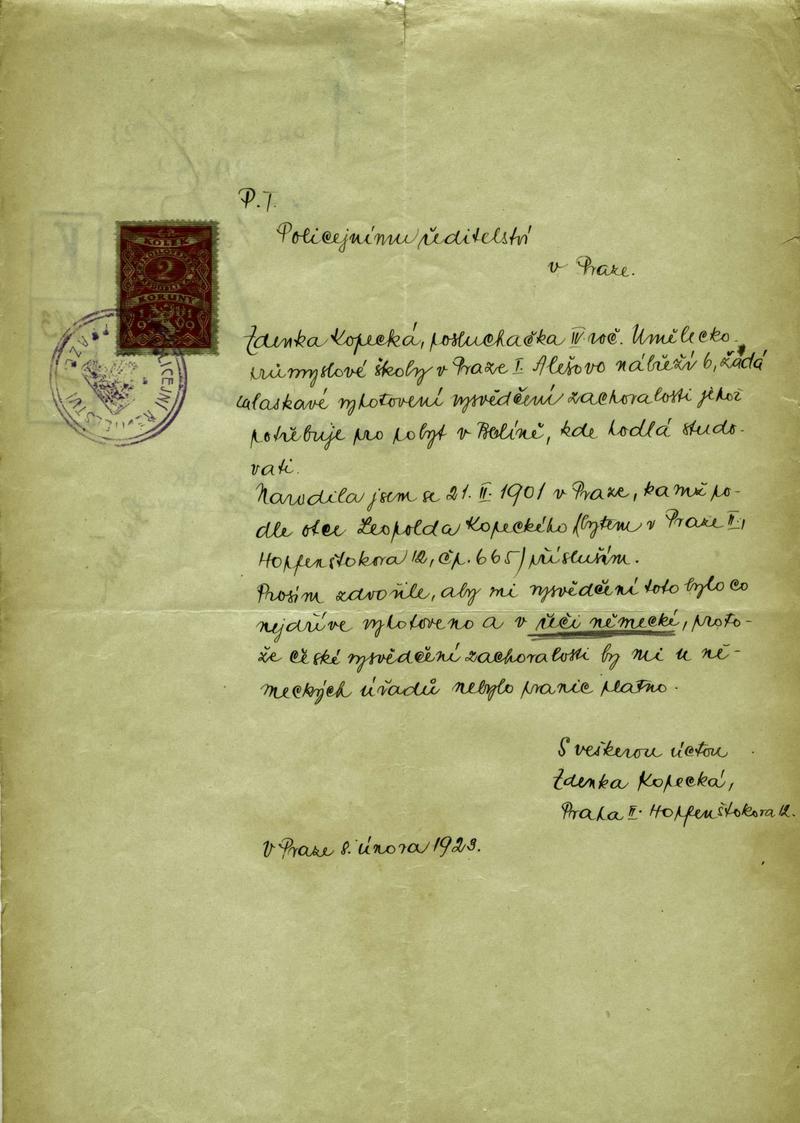 P. T.
Policejnímu ředitelství
v Praze.
KOLEK
2
KORUNY
Zdenka Kopecká, posluchačka IV roč. Umělecko-
průmyslové školy v Praze I. Alešovo nábřeží 6, žádá
o laskavé vyhotovení vysvědčení zachovalosti jehož
potřebuje pro pobyt v Berlíně, kde hodlá studo-
vati.
Narodila jsem se 21. II. 1901 v Praze, kamž po-
dle otce Leopolda Kopeckého (bytem v Praze II.,
Hopfenštokova 12, čp. 665) přísluším.
Prosím zdvořile, aby mi vysvědčení toto bylo co
nejdříve vyhotoveno a v řeči německé, proto-
že české vysvědčení zachovalosti by mi u ně-
meckých úřadů nebylo pranic platno.
S veškerou úctou
Zdenka Kopecká,
Praha II. Hopfenštokova 12.
V Praze 8. února 1923.